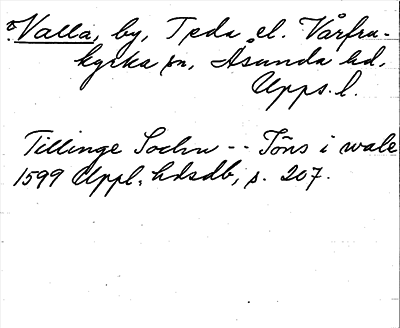 Valla, by, Teda el. Vårfru-
kyrka sn, Åsunda hd,
Upps. l.
Tillinge Sochn -- Jöns i wale
1599 Uppl. hdsdb, s. 207.